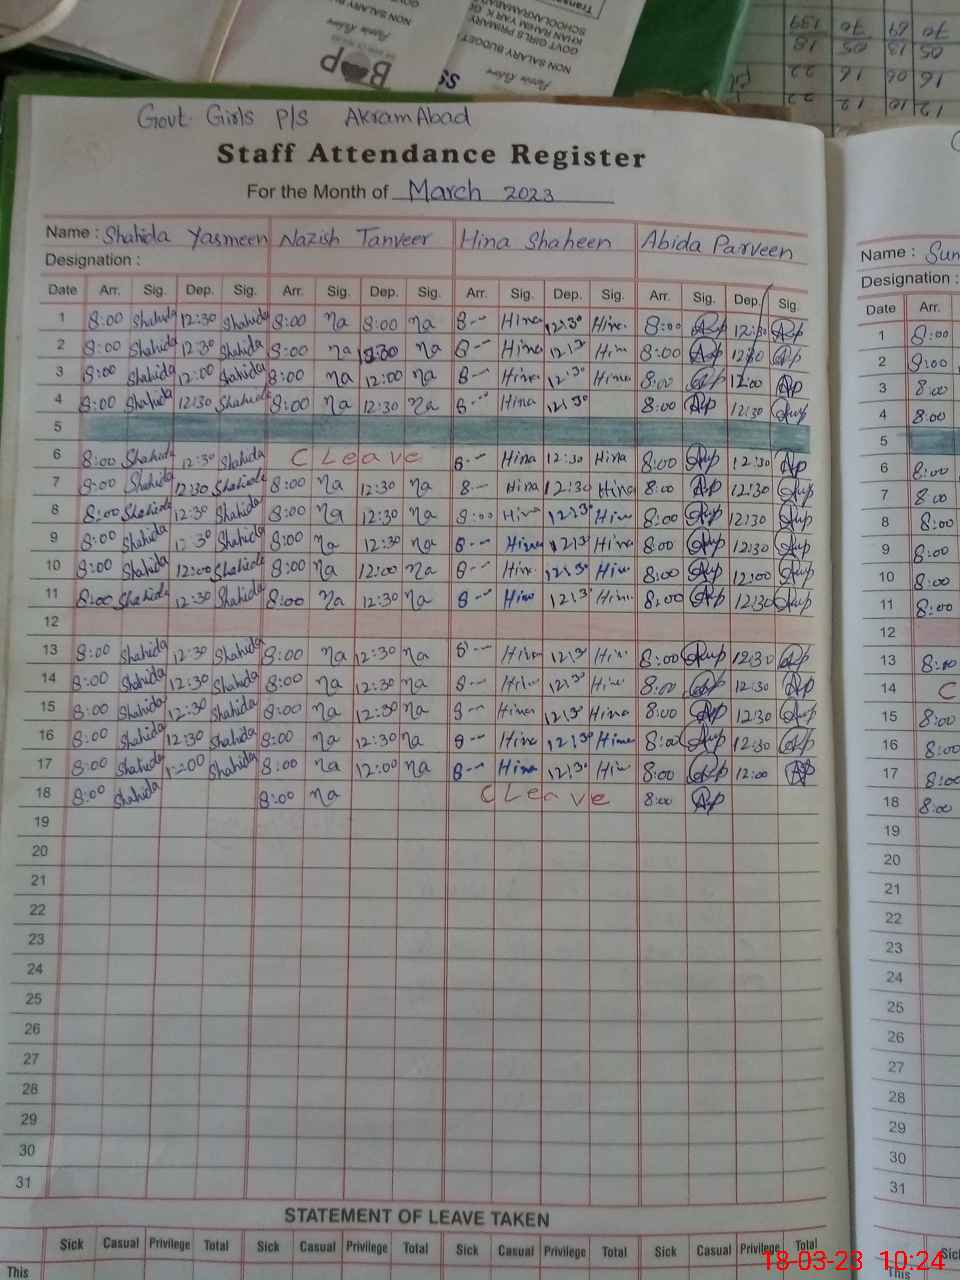 NON SALARY BUDGET
GOVT GIRLS PRIMARY
KHAN RAHIM YAR K
BOP
12 10 12 22
16 06 16 22
05 13 05 18
70 69 70 139
Govt. Girls P/S AkramAbad
Staff Attendance Register
For the Month of March 2023
Name : Shahida Yasmeen Nazish Tanveer Hina Shaheen Abida Parveen Name :
Designation : Designation :
Date Arr. Sig. Dep. Sig. Arr. Sig. Dep. Sig. Arr. Sig. Dep. Sig. Arr. Sig. Dep. Sig. Date Arr.
1 8:00 Shahida 12:30 Shahida 8:00 na 8:00 na 8-- Hina 12:30 Hina 8:00 Ap 12:30 Ap 1 8:00
2 8:00 Shahida 12:30 Shahida 8:00 na 12:30 na 8-- Hina 12:30 Hina 8:00 Ap 12:30 Ap 2 8:00
3 8:00 Shahida 12:00 Shahida 8:00 na 12:00 na 8-- Hina 12:30 Hina 8:00 Ap 12:00 Ap 3 8:00
4 8:00 Shahida 12:30 Shahida 8:00 na 12:30 na 8-- Hina 12:30 8:00 Ap 12:30 Ap 4 8:00
5 5
6 8:00 Shahida 12:30 Shahida C Leave 8-- Hina 12:30 Hina 8:00 Ap 12:30 Ap 6 8:00
7 8:00 Shahida 12:30 Shahida 8:00 na 12:30 na 8-- Hina 12:30 Hina 8:00 Ap 12:30 Ap 7 8:00
8 8:00 Shahida 12:30 Shahida 8:00 na 12:30 na 8:00 Hina 12:30 Hina 8:00 Ap 12:30 Ap 8 8:00
9 8:00 Shahida 12:30 Shahida 8:00 na 12:30 na 8-- Hina 12:30 Hina 8:00 Ap 12:30 Ap 9 8:00
10 8:00 Shahida 12:00 Shahida 8:00 na 12:00 na 8-- Hina 12:30 Hina 8:00 Ap 12:00 Ap 10 8:00
11 8:00 Shahida 12:30 Shahida 8:00 na 12:30 na 8-- Hina 12:30 Hina 8:00 Ap 12:30 Ap 11 8:00
12 12
13 8:00 Shahida 12:30 Shahida 8:00 na 12:30 na 8-- Hina 12:30 Hina 8:00 Ap 12:30 Ap 13 8:00
14 8:00 Shahida 12:30 Shahida 8:00 na 12:30 na 8-- Hina 12:30 Hina 8:00 Ap 12:30 Ap 14 C
15 8:00 Shahida 12:30 Shahida 8:00 na 12:30 na 8-- Hina 12:30 Hina 8:00 Ap 12:30 Ap 15 8:00
16 8:00 Shahida 12:30 Shahida 8:00 na 12:30 na 8-- Hina 12:30 Hina 8:00 Ap 12:30 Ap 16 8:00
17 8:00 Shahida 12:00 Shahida 8:00 na 12:00 na 8-- Hina 12:30 Hina 8:00 Ap 12:00 Ap 17 8:00
18 8:00 Shahida 8:00 na C Leave 8:00 Ap 18 8:00
19 19
20 20
21 21
22 22
23 23
24 24
25 25
26 26
27 27
28 28
29 29
30 30
31 31
STATEMENT OF LEAVE TAKEN
Sick Casual Privilege Total Sick Casual Privilege Total Sick Casual Privilege Total Sick Casual Privilege Total
This This
18-03-23 10:24